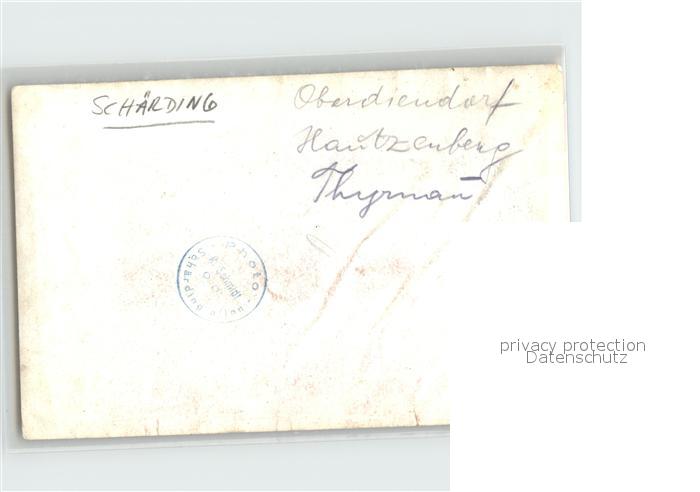 SCHÄRDING
Oberdiendorf
Hautzenberg
Thyrnau
Photo
Schmidt
Schärding a/Inn
privacy protection
Datenschutz